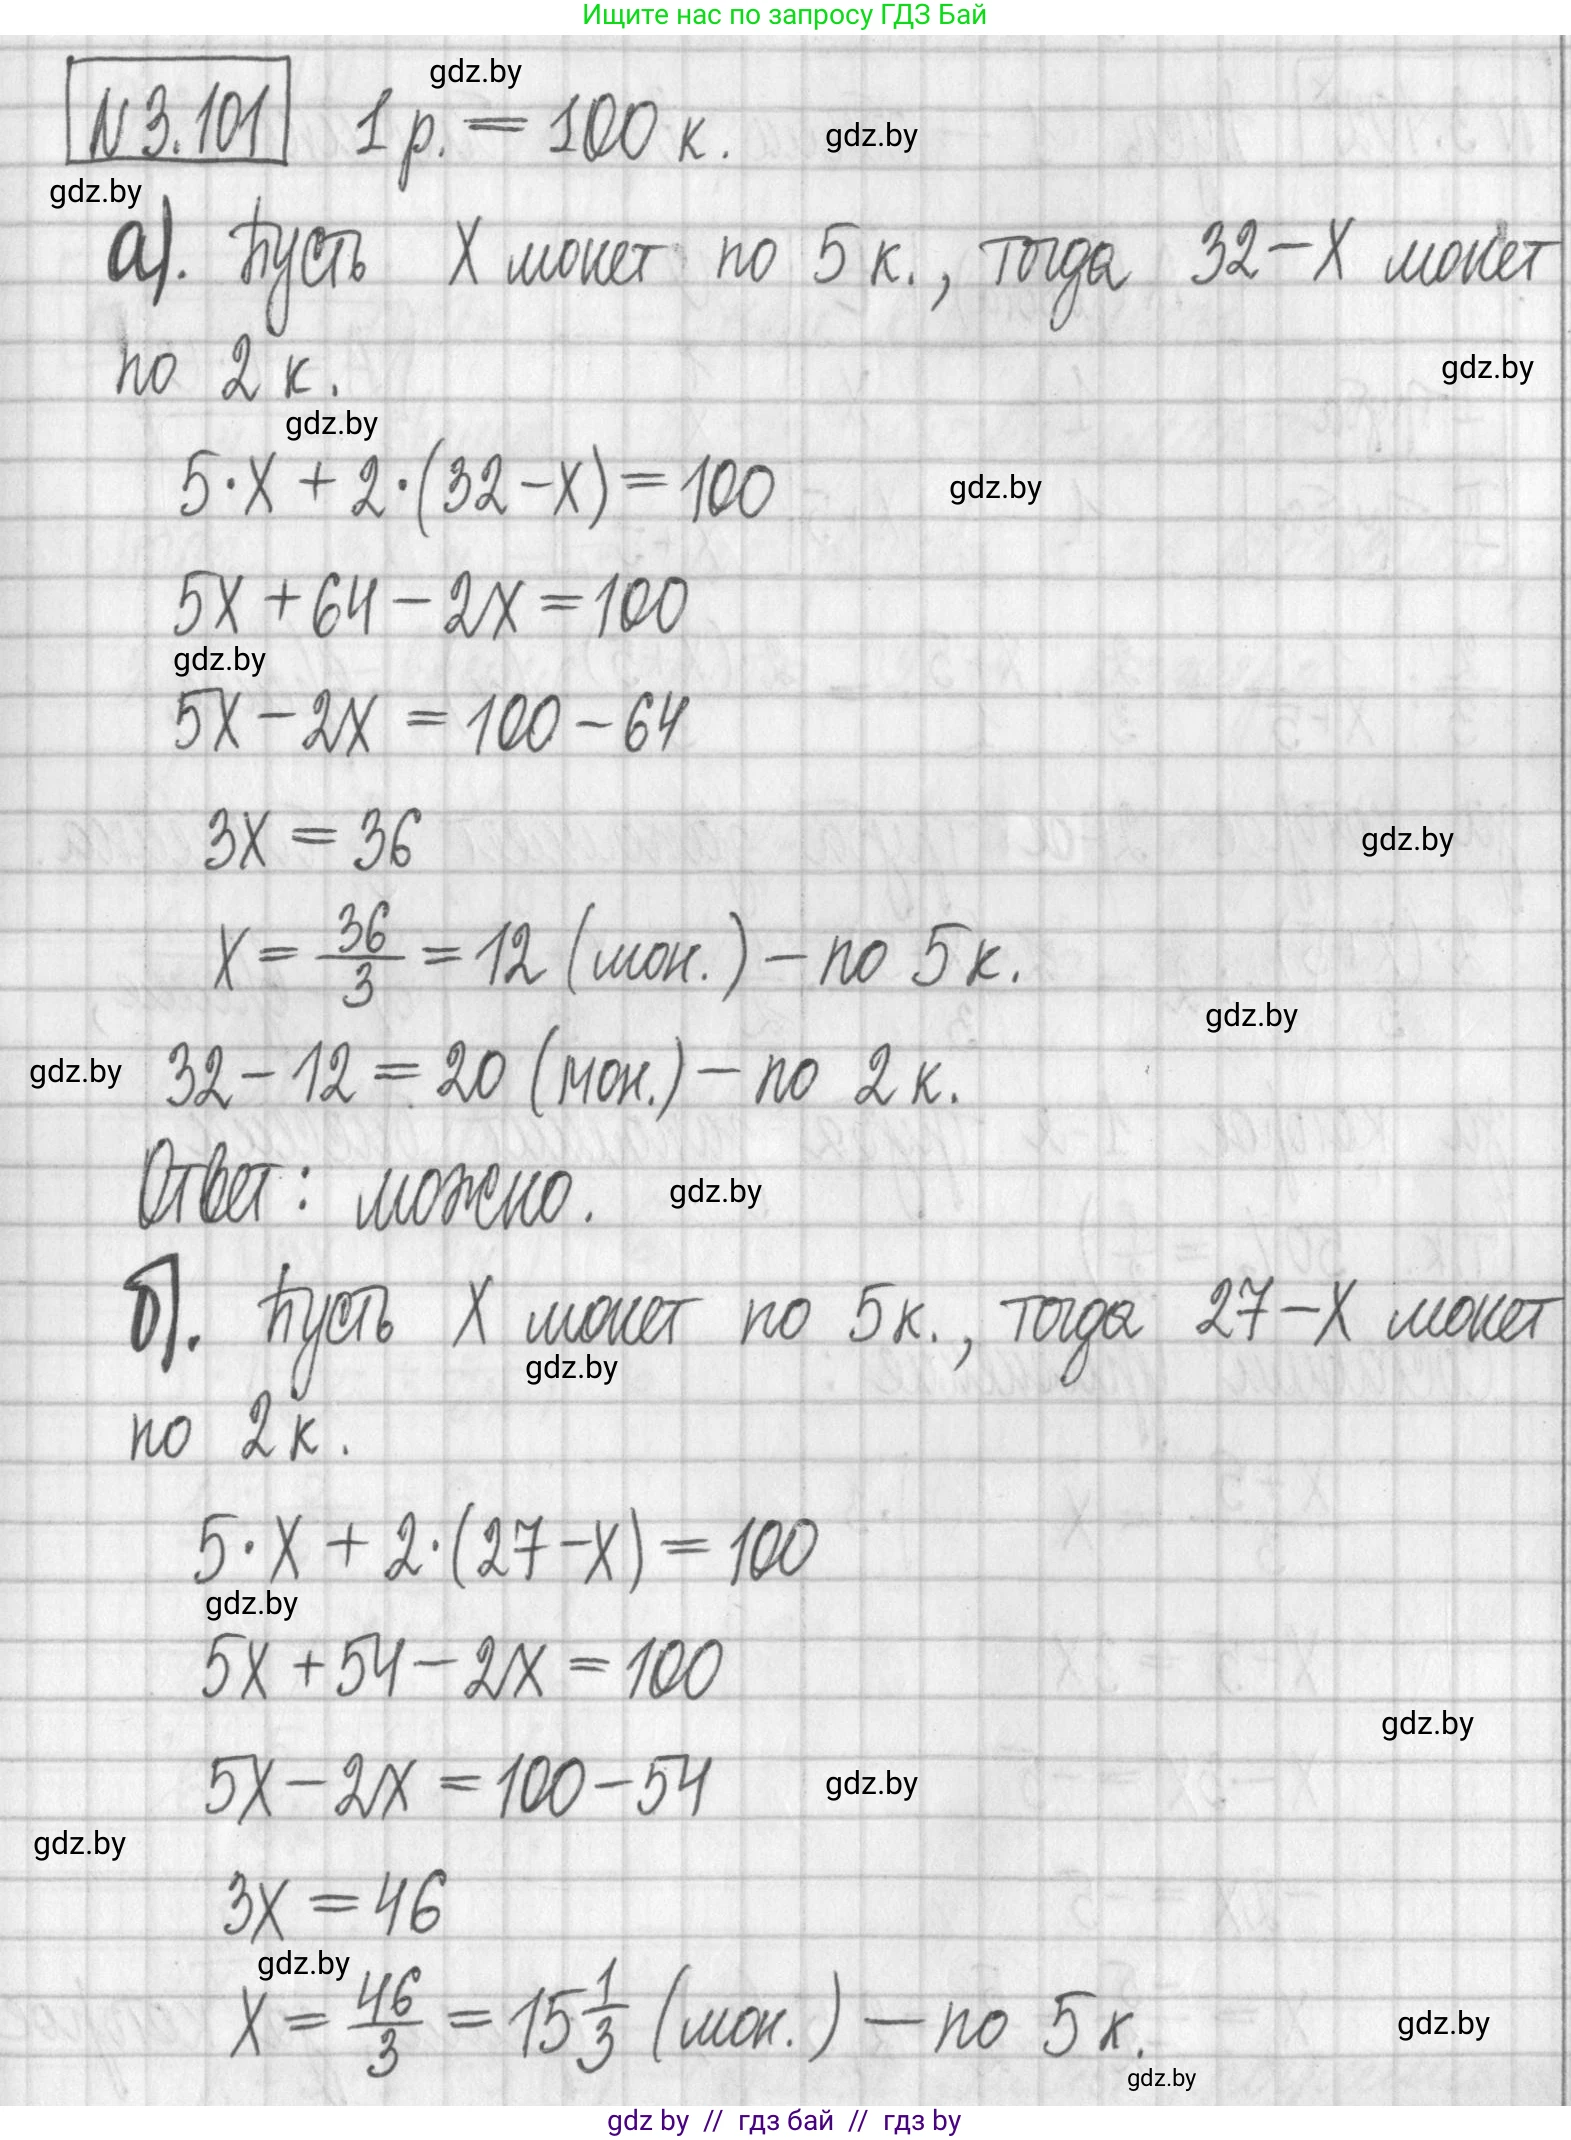 Ищите нас по запросу ГДЗ Бай
gdz.by
N 3.101 1 р. = 100 к.
gdz.by
gdz.by
а). Пусть X монет по 5 к., тогда 32 - X монет
по 2 к.
gdz.by
gdz.by
5·X + 2·(32-X) = 100
gdz.by
5X + 64 - 2X = 100
gdz.by
5X - 2X = 100 - 64
3X = 36
gdz.by
X = 36/3 = 12 (мон.) - по 5 к.
gdz.by
gdz.by
32 - 12 = 20 (мон.) - по 2 к.
Ответ: можно.
gdz.by
б). Пусть X монет по 5 к., тогда 27 - X монет
gdz.by
по 2 к.
5·X + 2·(27-X) = 100
gdz.by
5X + 54 - 2X = 100
gdz.by
5X - 2X = 100 - 54
gdz.by
gdz.by
3X = 46
gdz.by
X = 46/3 = 15 1/3 (мон.) - по 5 к.
gdz.by
gdz.by
gdz by // гдз бай // гдз by